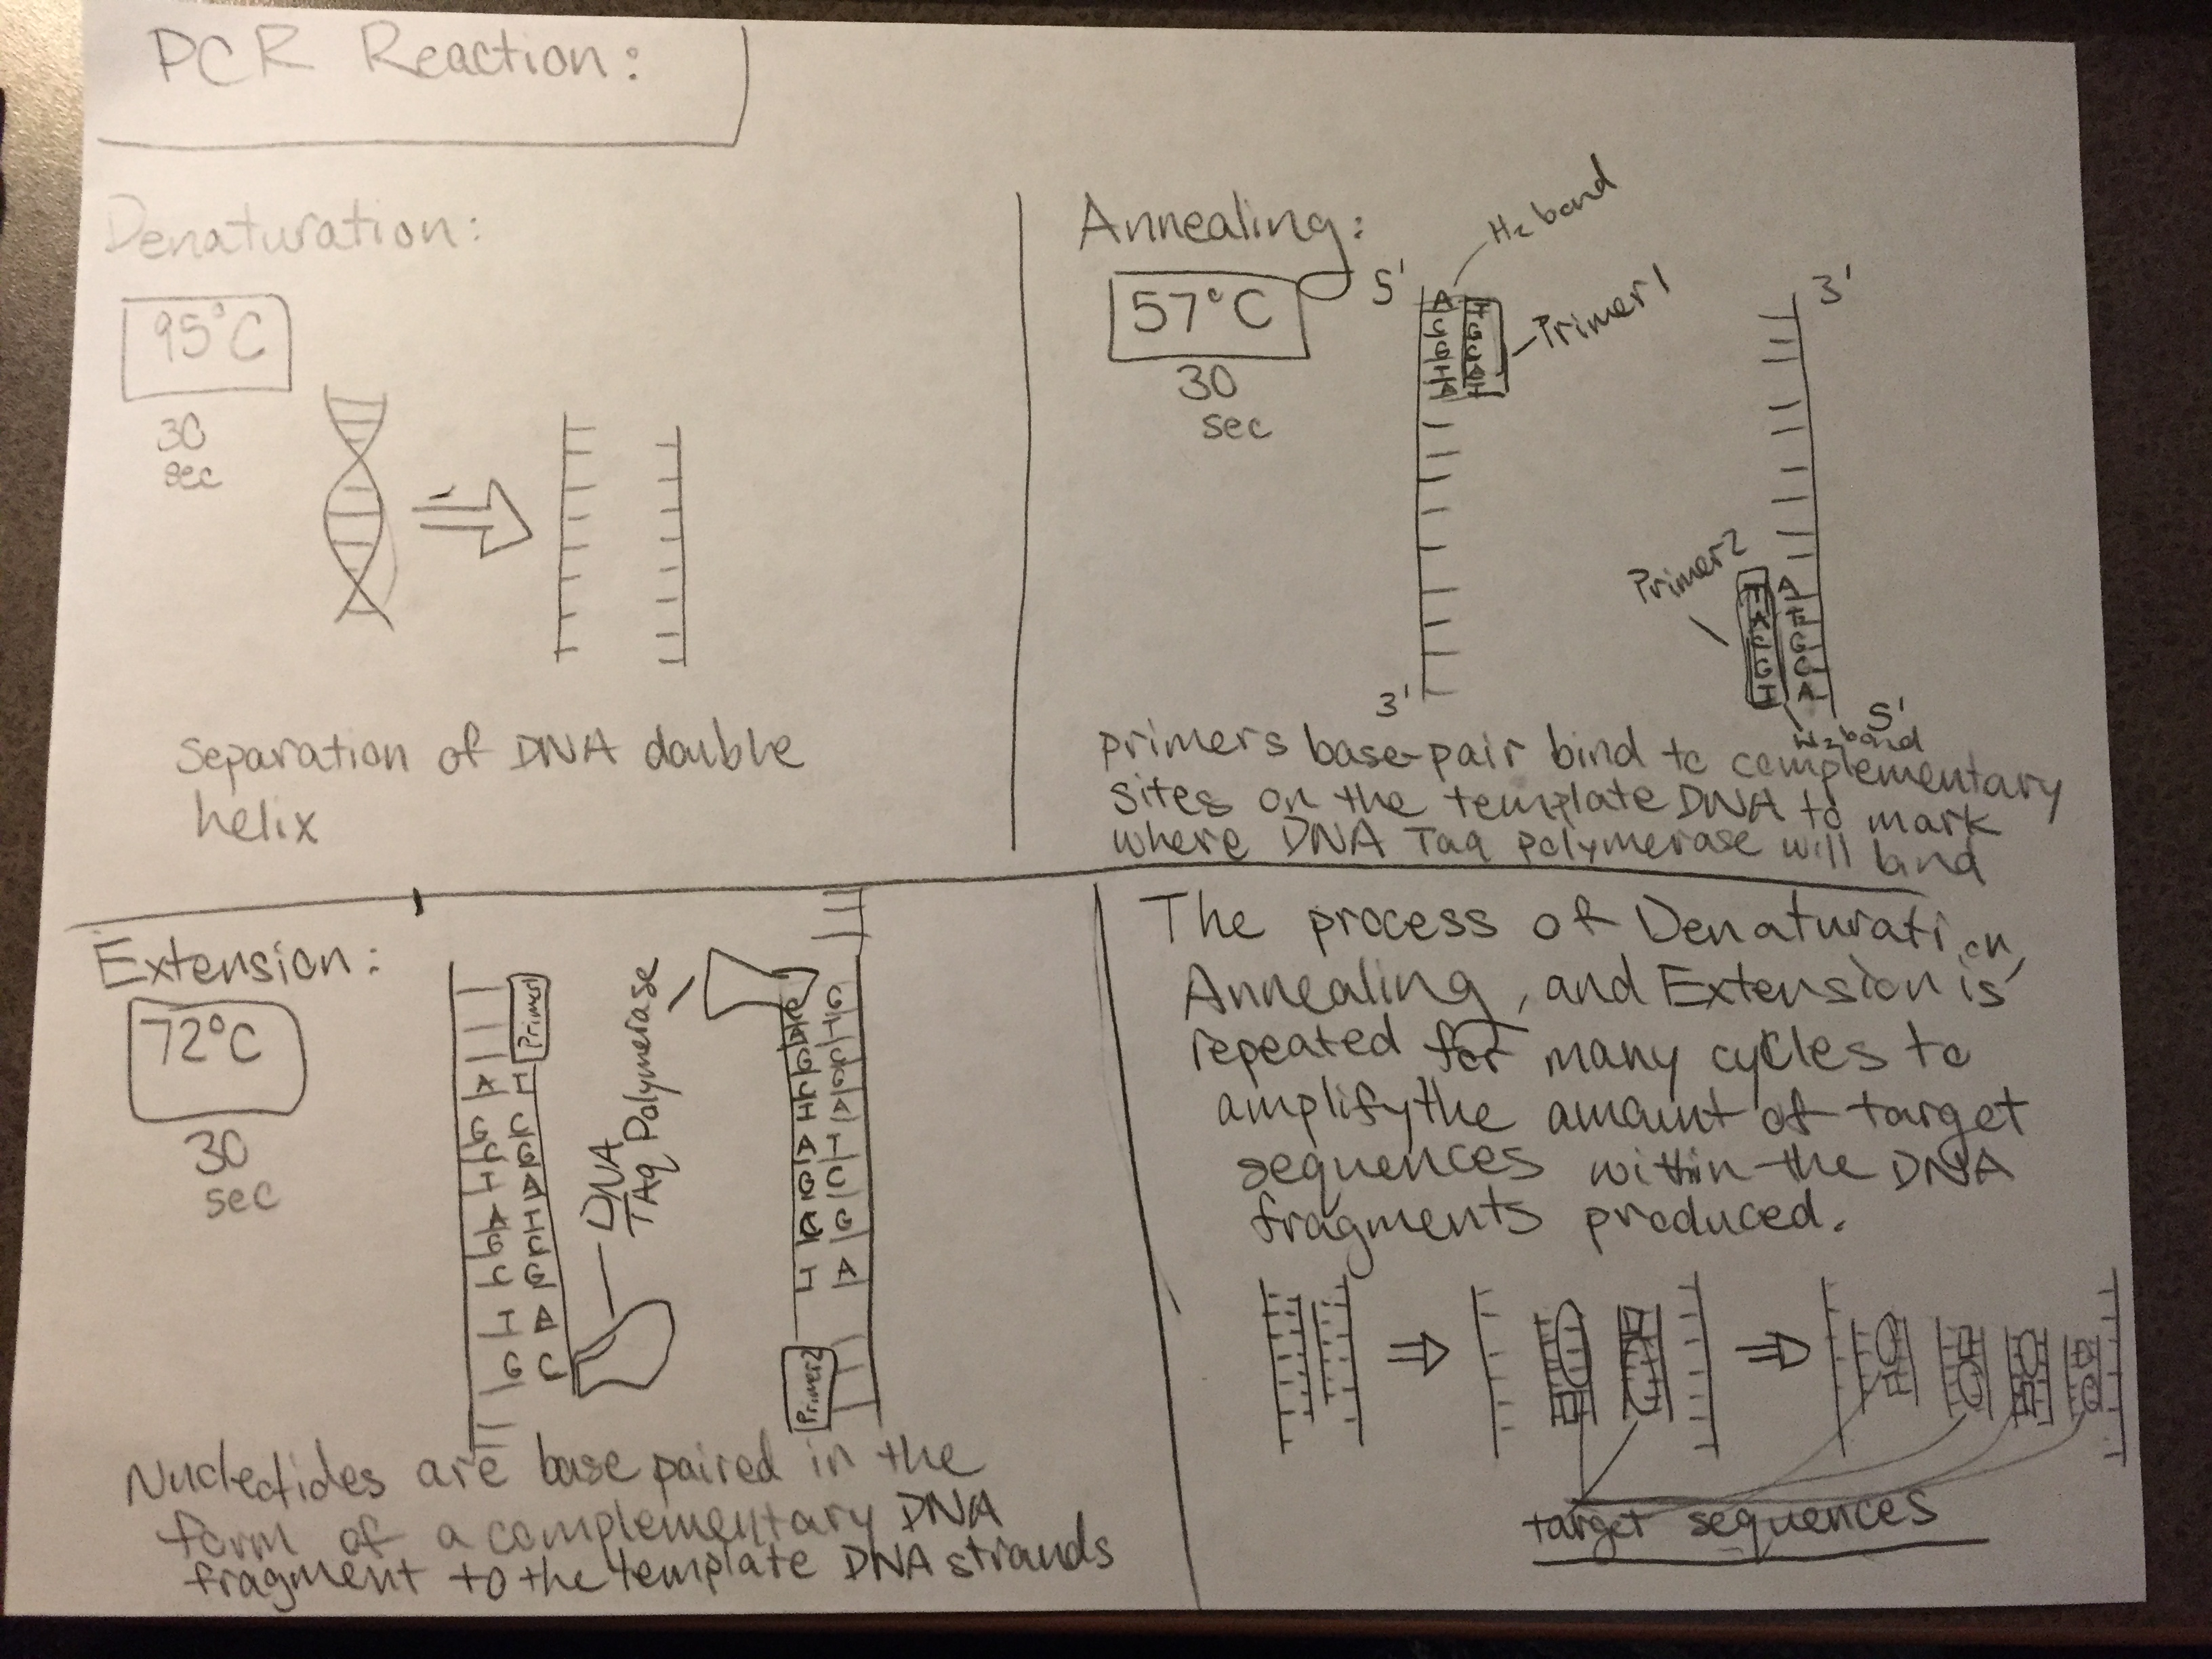 PCR Reaction:
Denaturation:
95°C
30
sec
separation of DNA double
helix
Annealing:
57°C
30
sec
5'
H₂ bond
A
C
G
T
A
T
G
C
A
T
Primer 1
3'
3'
Primer 2
T
A
C
G
T
A
T
G
C
A
5'
H₂ bond
primers base-pair bind to complementary
sites on the template DNA to mark
where DNA Taq polymerase will bind
Extension:
72°C
30
sec
Primer1
A T
G C
C G
T A
A T
G C
C G
T A
G C
DNA
TAq Polymerase
C G
A T
G C
C G
T A
A T
G C
C G
T A
Primer2
Nucleotides are base paired in the
form of a complementary DNA
fragment to the template DNA strands
The process of Denaturation,
Annealing, and Extension is
repeated for many cycles to
amplify the amount of target
sequences within the DNA
fragments produced.
target sequences